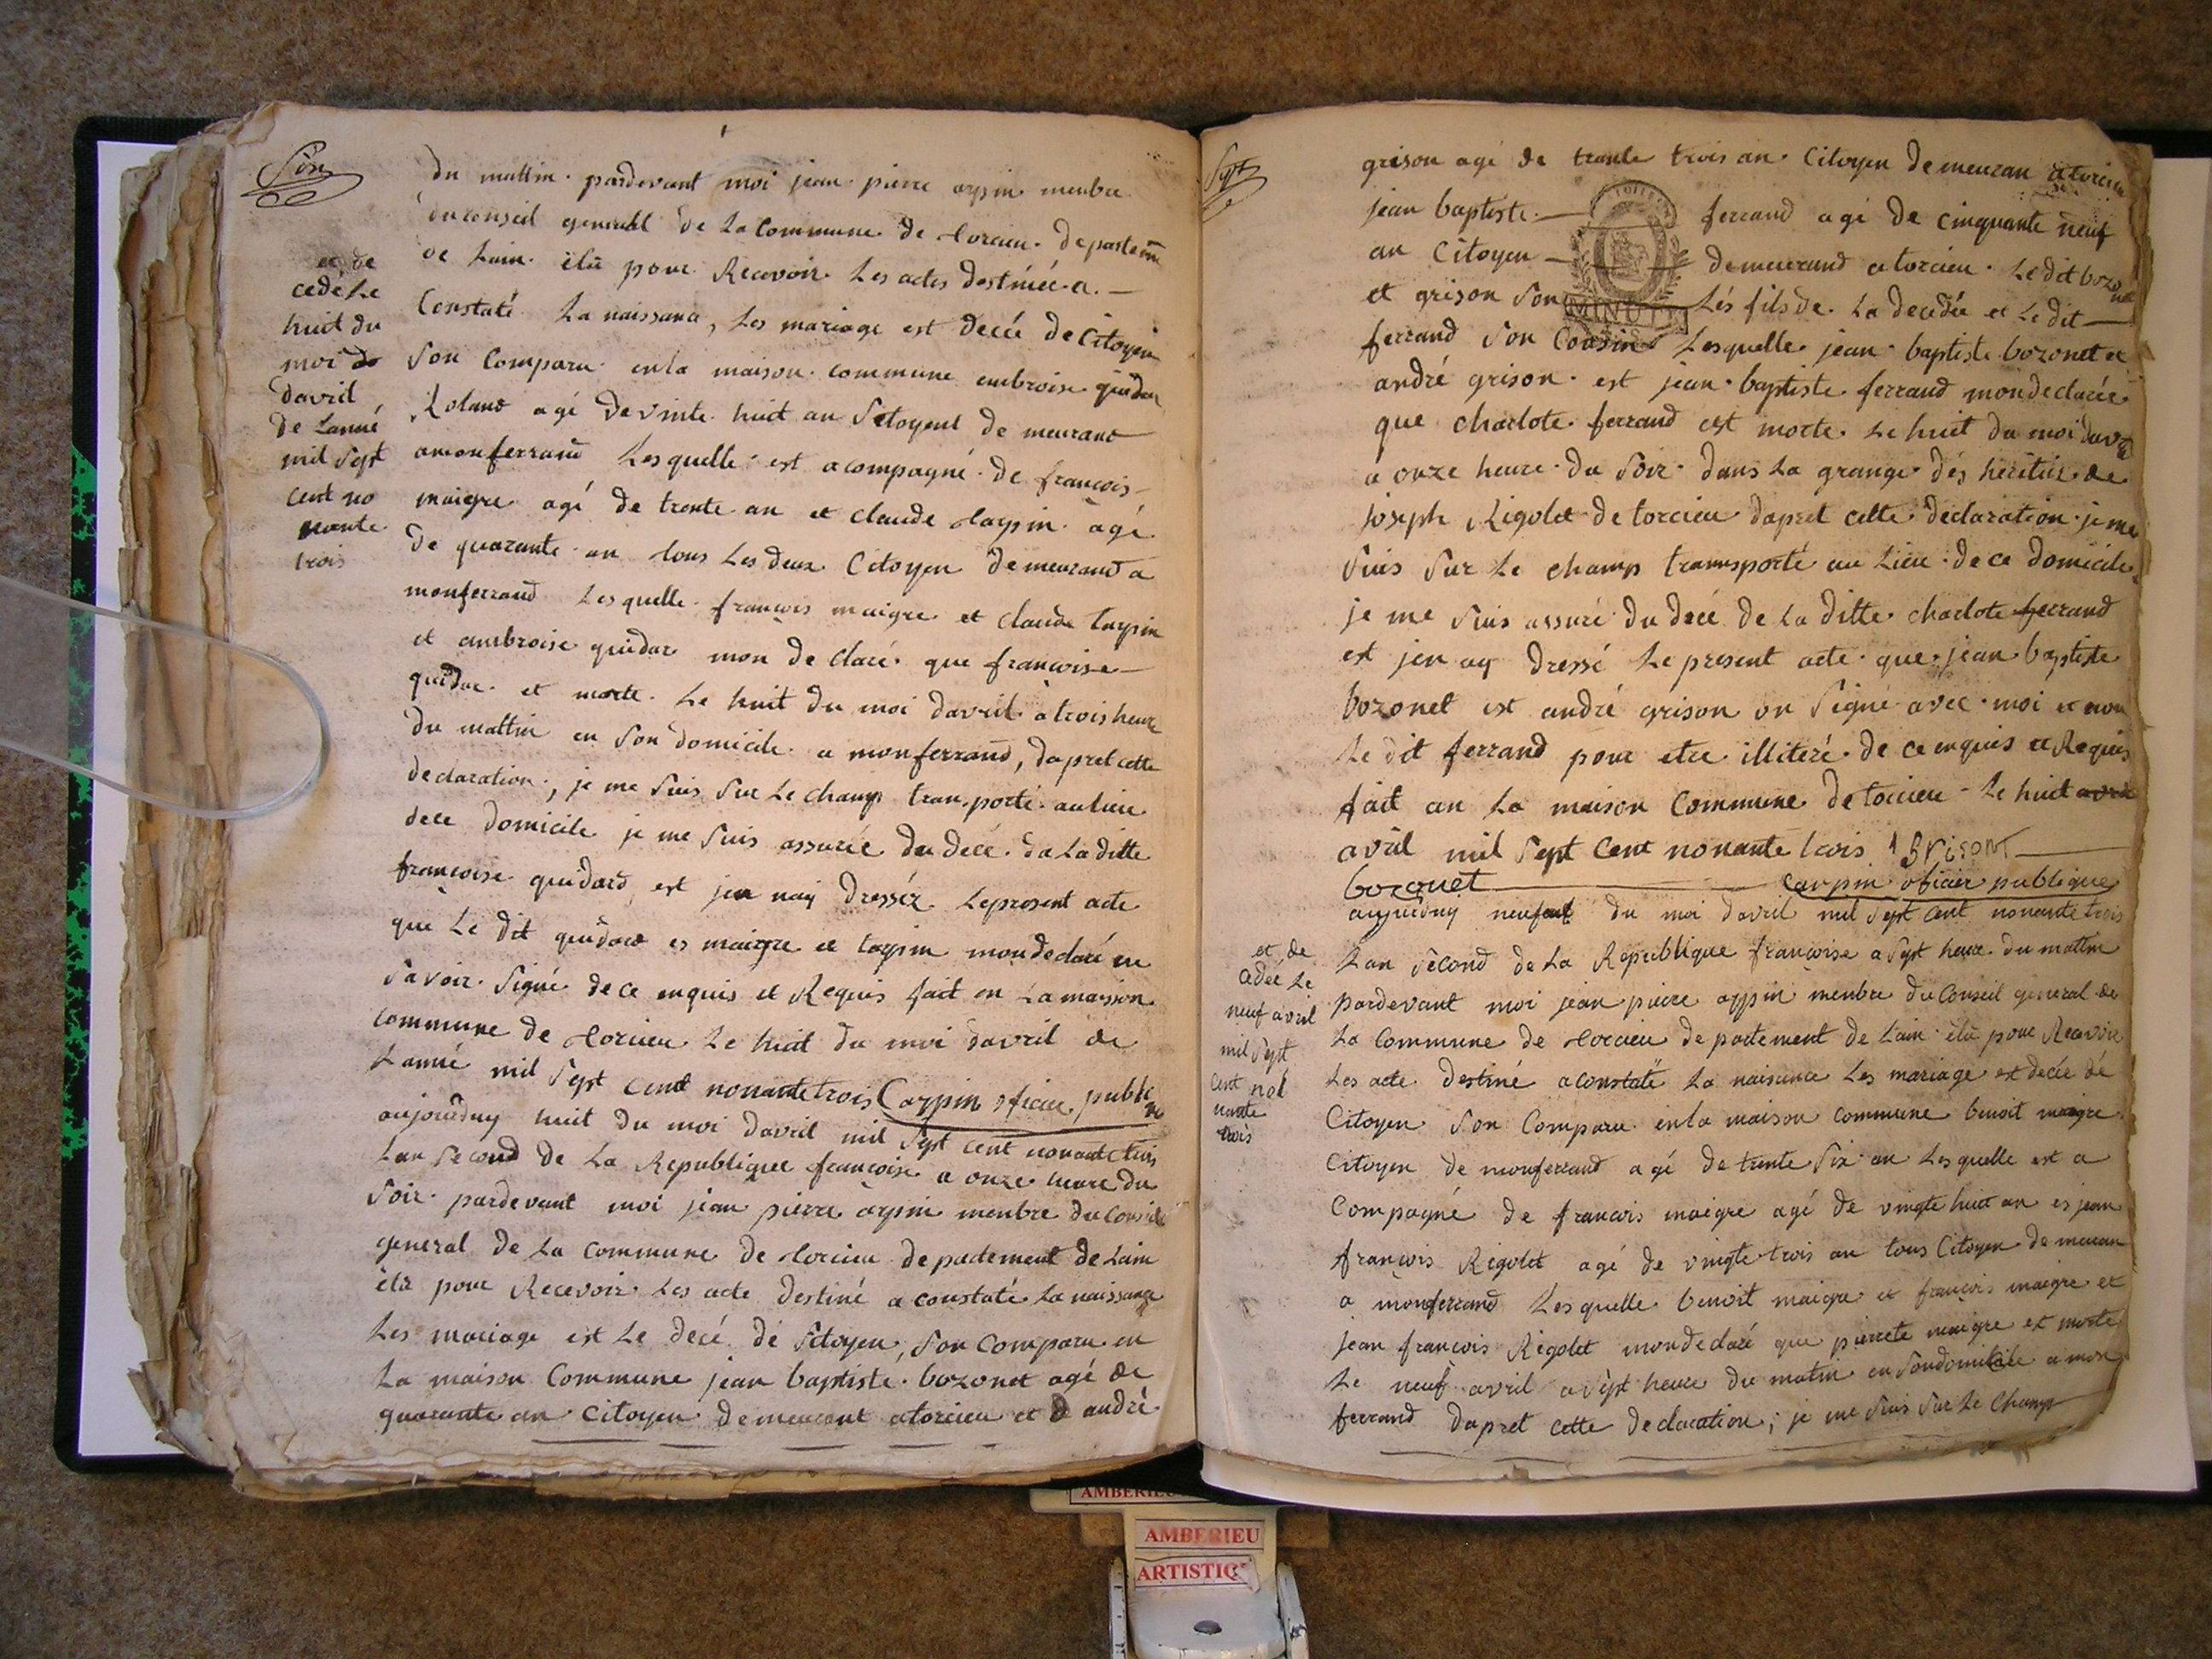 Six
du mattin pardevant moi jean pierre arpin menbre
du conseil generall de La Commune de torcieu departem
de Lain élu pour Recevoir Les actes destinée a
Constaté La naissance, Les mariage est decée de Citoyen
Son Comparu en la maison commune embroise guidar
Roland agé de vinte huit an Sitoyent de meurant
amonferrand Lesquelle est acompagné de francois
maigre agé de trente an et claude tarpin agé
de quarante an tous Les deux Citoyen demeurand a
monferrand Lesquelle francois maigre et claude tarpin
et ambroise guidar mon de claré que francoise
guidar et morte Le huit du moi davril a trois heure
du mattin en Son domicile a monferrand, dapret cette
declaration, je me Suis Sur Le champ transporté au lieu
dece domicile je me Suis assurée du decé da La ditte
francoise guidard est jen nay dressér Lepresent acte
que Le dit guidard es maigre et tarpin mondedaré ne
Savoir Signé de ce enquis et Requis fait en La maison
commune de torcieu Le huit du moi davril de
Lanné mil Sept Cent nonante trois Carpin oficier publique
et de
cedé Le
huit du
moi do
davril
de Lanné
mil Sept
cent no
nante
trois
aujourduy huit du moi davril mil Sept cent nonante trois
Lan Second de La Republique francoise a onze heure du
Soir pardevant moi jean pierre arpin menbre du Conseil
general de La Commune de torcieu departement de Lain
élu pour Recevoir Les acte destiné a constaté La naissance
Les mariage est Le decé de Sitoyen, Son Comparu en
La maison Commune jean baptiste bozonet agé de
quarante an Citoyen demeurant atorcieu et d andré
Sept
grison agé de trante trois an Citoyen demeuran atorcieu
jean baptiste ferrand agé de Cinquante neuf
an Citoyen demeurand atorcieu Le dit bozonet
et grison Son Lés fils de La decedée et Le dit
MINUTE
ferrand Son Cousin Lesquelle jean baptiste bozonet et
andré grison est jean baptiste ferrand mondeclarée
que charlote ferrand est morte Le huit du moi davril
a onze heure du Soir dans La grange dés heritier de
joseph Rigolet de torcieu dapret cette declaration je me
Suis Sur Le champ trannsporté au Lieu de ce domicile
je me Suis assuré du decé de La ditte charlote ferrand
est jen ay dressé Le present acte que jean baptiste
bozonet est andré grison on Signé avec moi et non
Le dit ferrand pour etre illitéré de ce enquis et Requis
fait an La maison Commune de torcieu Le huit avril
avril mil Sept Cent nonante trois Brison
bozonet Carpin oficier publique
aujourduy neuf du moi davril mil Sept cent nonante trois
Lan Sécond de La Republique francoise a Sept heure du mattin
pardevant moi jean pierre arpin menbre du Conseil general de
La Commune de torcieu departement de Lain élu pour Recevoir
Les acte destiné aconstaté La naisance Les mariage est decée dé
Citoyen Son Comparu en la maison Commune benoit maigre
Citoyen de monferrand agé de trente Six an Lesquelle est a
Compagné de francois maigre agé de vingte huit an es jean
francois Rigolet agé de vingte trois an tous Citoyen demeuran
a monferrand Lesquelle benoit maigre et francois maigre et
jean francois Rigolet mondedaré que pierrete maigre et morte
Le neuf avril a Sept heure du matin en Sondomicile a mon
ferrand dapret cette declaration, je me Suis Sur Le Champ
et de
cedée Le
neuf avril
mil Sept
cent no
nante
trois
AMBERIEU
ARTISTIQ